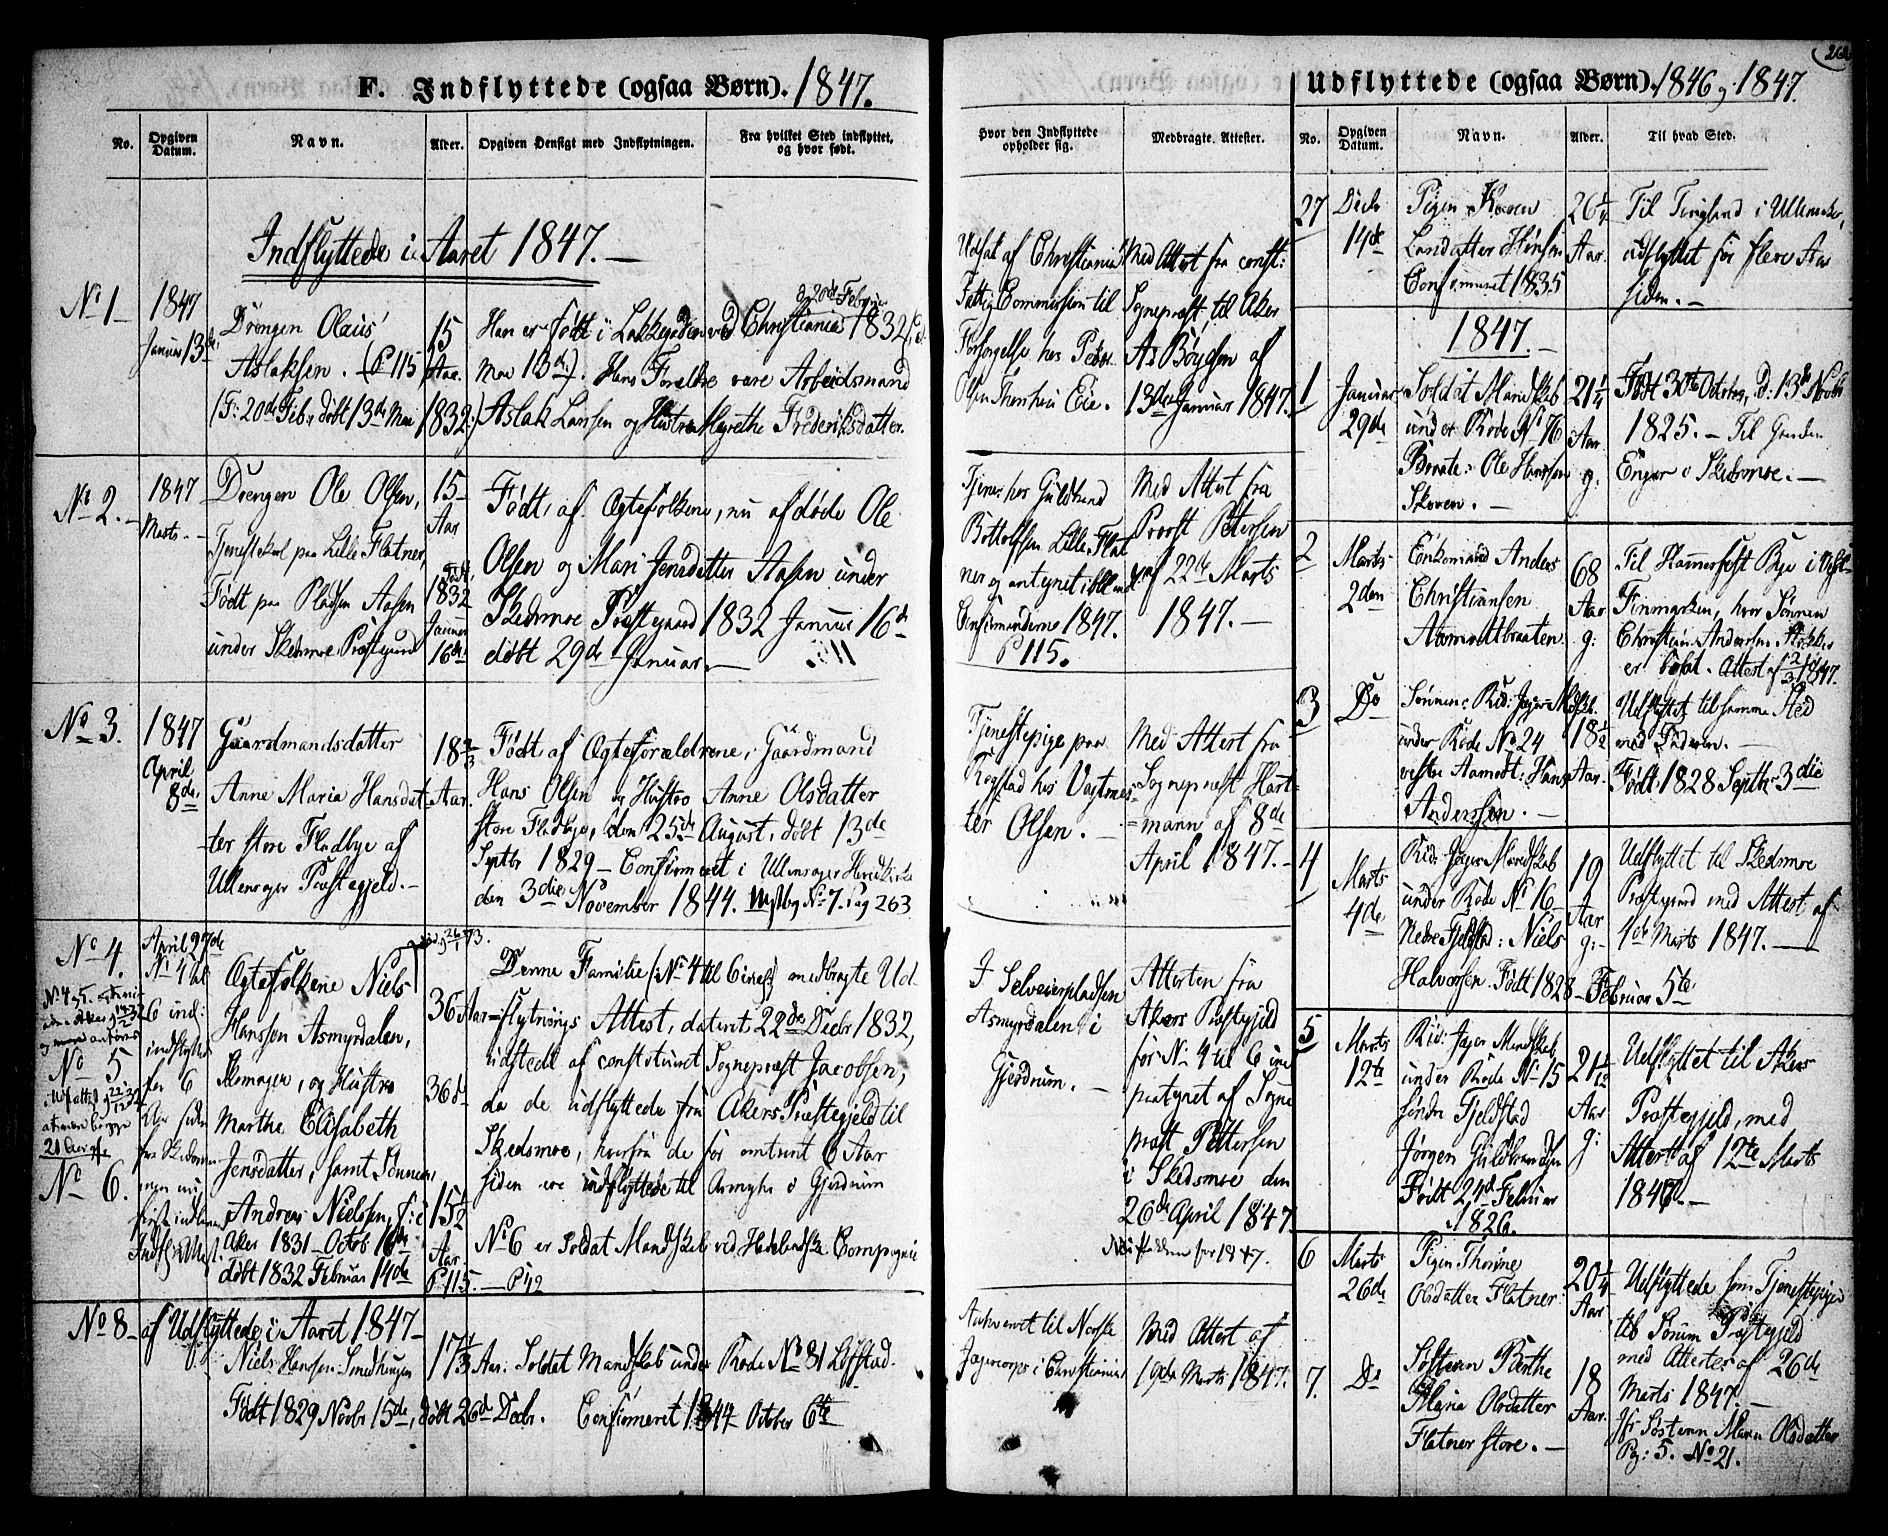 F. Indflyttede (ogsaa Børn). 1847.
No.
Opgiven Datum.
Navn.
Alder.
Opgiven Hensigt med Indflytningen.
Fra hvilket Sted indflyttet, og hvor født.
Indflyttede i Aaret 1847.
No 1
1847
Januar 13de
Drengen Olaus
Aslaksen. (P 115
(F: 20de Feb, døbt 13de Mai 1832:)
15
Aar.
Han er født i Lakkegaden ved Christiania 1832
Mai 13de). Hans Forældre vare Arbeidsmand
Aslak Larssen og Hustru Magrethe Frederiksdatter.
No 2.
1847
Marts
Drengen Ole Olsen,
Tjenestekarl paa Lille Flatner,
Født paa Pladsen Aasen
under Skedsmoe Præstegaard
15
Aar
Født
1832
Januar
16de
Født af Ægtefolkene, nu afdøde Ole
Olsen og Mari Jensdatter Aasen under
Skedsmoe Præstegaard 1832 Januar 16de
døbt 29de Januar.
No 3.
1847
April
8de
Gaardmandsdatter
Anne Maria Hansdat
ter store Fladbye af
Ullensager Præstegjeld.
18 2/3
Aar.
Født af Ægteforældrene, Gaardmand
Hans Olsen og Hustro Anne Olsdatter
store Fladbye, den 25de August, døbt 13de
Septbr 1829 – Confirmeret i Ullensager Hovedkirke
den 3die November 1844. Udflyttet No 7. Pag 263
No 4.
No 5
No 6.
April 27de
No 4 til
6 ind:
indflyttet
for 6
Aar siden
fra Skedsmoe
men nu
først indleveret
Indfl: Attest.
Ægtefolkene Niels
Hanssen Asmyrdalen,
Skomager, og Hustro
Marthe Elisabeth
Jensdatter, samt Sønnen
Andreas Nielsen, f: i
Aker 1831 – Octob 16de
døbt 1832 Februar 14de
36 Aar
36 do
15 1/2
Aar
P. 115. – P 42
Denne Familie (No 4 til 6 incl:) medbragte Ud-
flytnings Attest, dateret 22de Decbr 1832,
udstedt af constitueret Sognepræst Jacobsen,
da de udflyttede fra Akers Præstegjeld til
Skedsmoe, hvorfra de for omtrent 6 Aar
siden ere indflyttede til Asmyhr i Gjerdrum
No 6 er Soldat Mandskab ved Hedelandske Compagnie
No 8 – af Udflyttede i Aaret 1847
Niels Hanssen Smedhaugen
Født 1829 Novbr 15de, døbt 26de Decbr. Confirmeret 1844 October 6te
17 1/3 Aar: Soldat Mandskab under Rode No 81 Løfstad.
Hvor den Indflyttede opholder sig.
Medbragte Attester.
Udsat af Christiania
Fattig Commission til
Forsørgelse hos Peder
Olsen Eie.
Med Attest fra const:
Sognepræst til Aker
As Bøygsen af
13de Januar 1847.
Tjener hos Guldbrand
Bottolfsen Lille Flat
ner og antegnet iblandt
Confirmanderne 1847.
P 115.
Med Attest fra
Provst Petersen
af 22de Marts
1847.
Tjenestepige paa
Rogstad hos
ter Olsen.
Med Attest fra
Sognepræst Hart-
mann af 8de
April 1847.
I Selveierpladsen
Asmyrdalen i
Gjerdrum.
Attesten fra
Akers Præstegjeld
for No 4 til 6 incl
paategnet af Sogne
præst Pettersen
i Skedsmoe den
26de April 1847.
Anhvervet til Norske
Jægercorps i Christiania
Med Attest af
19de Marts 1847.
Udflyttede (ogsaa Børn). 1846 og 1847.
No.
Opgiven Datum.
Navn.
Alder.
Til hvad Sted.
27
Decbr
14de
Pigen Karen
Larsdatter Hønsen
Confirmeret 1835
26 1/4
Aar.
Til Tingland i Ullensaker,
udflyttet for flere Aar
siden.
1847.
1
Januar
29de
Soldat Mandskab
under Rode No 76
Braate: Ole Hanssen
Skoven.
21 1/4
Aar
g:
Født 30te October, D: 13de Novbr
1825. – Til Gaarden
Enger i Skedsmoe.
2
Marts
2den
Enkemand Anders
Christiansen
Aamodtbraaten
68
Aar
g:
Til Hammerfest Bye i Vest-
Finmarken, hvor Sønnen
Christian Anderssen
er bosat. Attest af 2/3 1847.
3
Do
Sønnen: Rid: Jæger Mdskb.
under Rode No 24
vestre Aamodt: Hans
Anderssen.
18 1/2
Aar.
Udflyttet til samme Sted
med Faderen.
Født 1828 Septbr 3die
4
Marts
4de
Rid: Jæger Mandskab
under Rode No 16
Nedre Fjeldstad: Niels
Halvorsen. Født 1828 – Februar 5te
19
Aar
g:
Udflyttet til Skedsmoe
Præstegjeld med Attest af
4de Marts 1847.
5
Marts
12te
Rid: Jæger Mandskab
under Rode No 15
søndre Fjeldstad
Jørgen Guldbrandsen
Født 24de Februar
1826.
21 1/12
Aar
g:
Udflyttet til Akers
Præstegjeld, med
Attest af 12te Marts
1847.
6
Marts
26de
Pigen Thorine
Olsdatter Flatner
20 1/4
Aar
Udflyttede som Tjenestepiger
til Sørum Præstegjeld
med Attester af 26de
Marts 1847.
Jfr Søsteren Maren Olsdatter
Pg: 5. No 21.
7.
Do
Søsteren Berthe
Maria Olsdatter
Flatner store.
18
Aar.